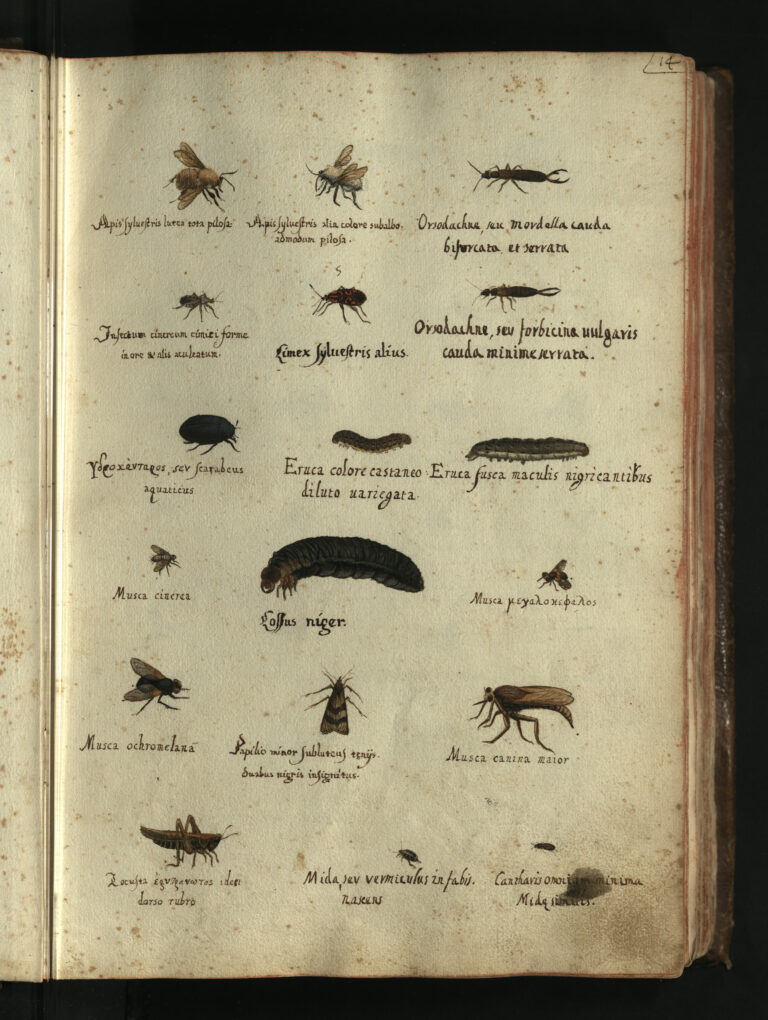 14
Apis sylvestris lutea tota pilosa.
Apis sylvestris alia colore subalbo,
admodum pilosa.
Orsodachne, seu mordella cauda
bifurcata et serrata
Insectum cinereum cimici forme
in ore & alis aculeatum.
5
Cimex sylvestris alius.
Orsodachne, seu forbicina uulgaris
cauda minime serrata.
seu scarabeus
aquaticus
Eruca colore castaneo
diluto uariegata.
Eruca fusca maculis nigricantibus
Musca cinerea
Cossus niger.
Musca μεγαλοκεφαλος
Musca ochromelana
Papilio minor subluteus tenijs
duabus nigris insignitus.
Musca canina maior
Locusta idest
dorso rubro
Mida, seu vermiculus in fabis.
nascens
Cantharis omnium minima
Midę similis.